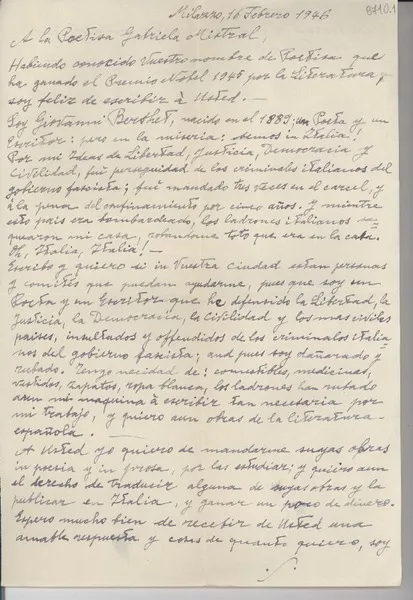 87101
Milazzo, 16 Febrero 1946
A la Poetisa Gabriela Mistral,
Habiendo conocido Vuestro nombre de Poetisa que
ha ganado el Premio Nobel 1945 por la Literatura,
soy feliz de escribir à Usted. —
Soy Giovanni Berthet, nacido en el 1889; un Poeta y un
Escritor: pero en la miseria: Semos in Italia!
Por mi Ideas de Libertad, Justicia, Democracia y
Civilidad, fuí perseguidad de los criminales italianos del
gobierno fascista; fuí mandado tres veces en el carcel, y
à la pena del confinamiento por cinco años. Y mientre
esto pais era bombardeado, los ladrones italianos sa-
quearon mi casa, robandome toto que era en la casa.
Oh, Italia, Italia! —
Escribo y quiero si in Vuestra ciudad estan personas
y comités que puedan ayudarme, pues que soy un
Poeta y un Escritor que he defendido la Libertad, la
Justicia, la Democracia, la Civilidad y los mas civiles
paises, insultados y offendidos de los criminalos italia-
nos del gobierno fascista; and pues soy dañarado y
rubado. Tengo necidad de: comestibles, medicinas,
vestidos, zapatos, ropa blanca, los ladrones han rubado
aun mi maquina à escribir tan necesaria por
mi trabajo, y quiero aun obras de la literatura
española. —
A Usted yo quiero de mandarme suyas obras
in poesia y in prosa, por las estudiar; y quiero aun
el derecho de traducir alguna de suyas obras y la
publicar en Italia, y ganar un poco de dinero.
Espero mucho bien de recebir de Usted una
amable respuesta y cosas de quanto quiero, soy